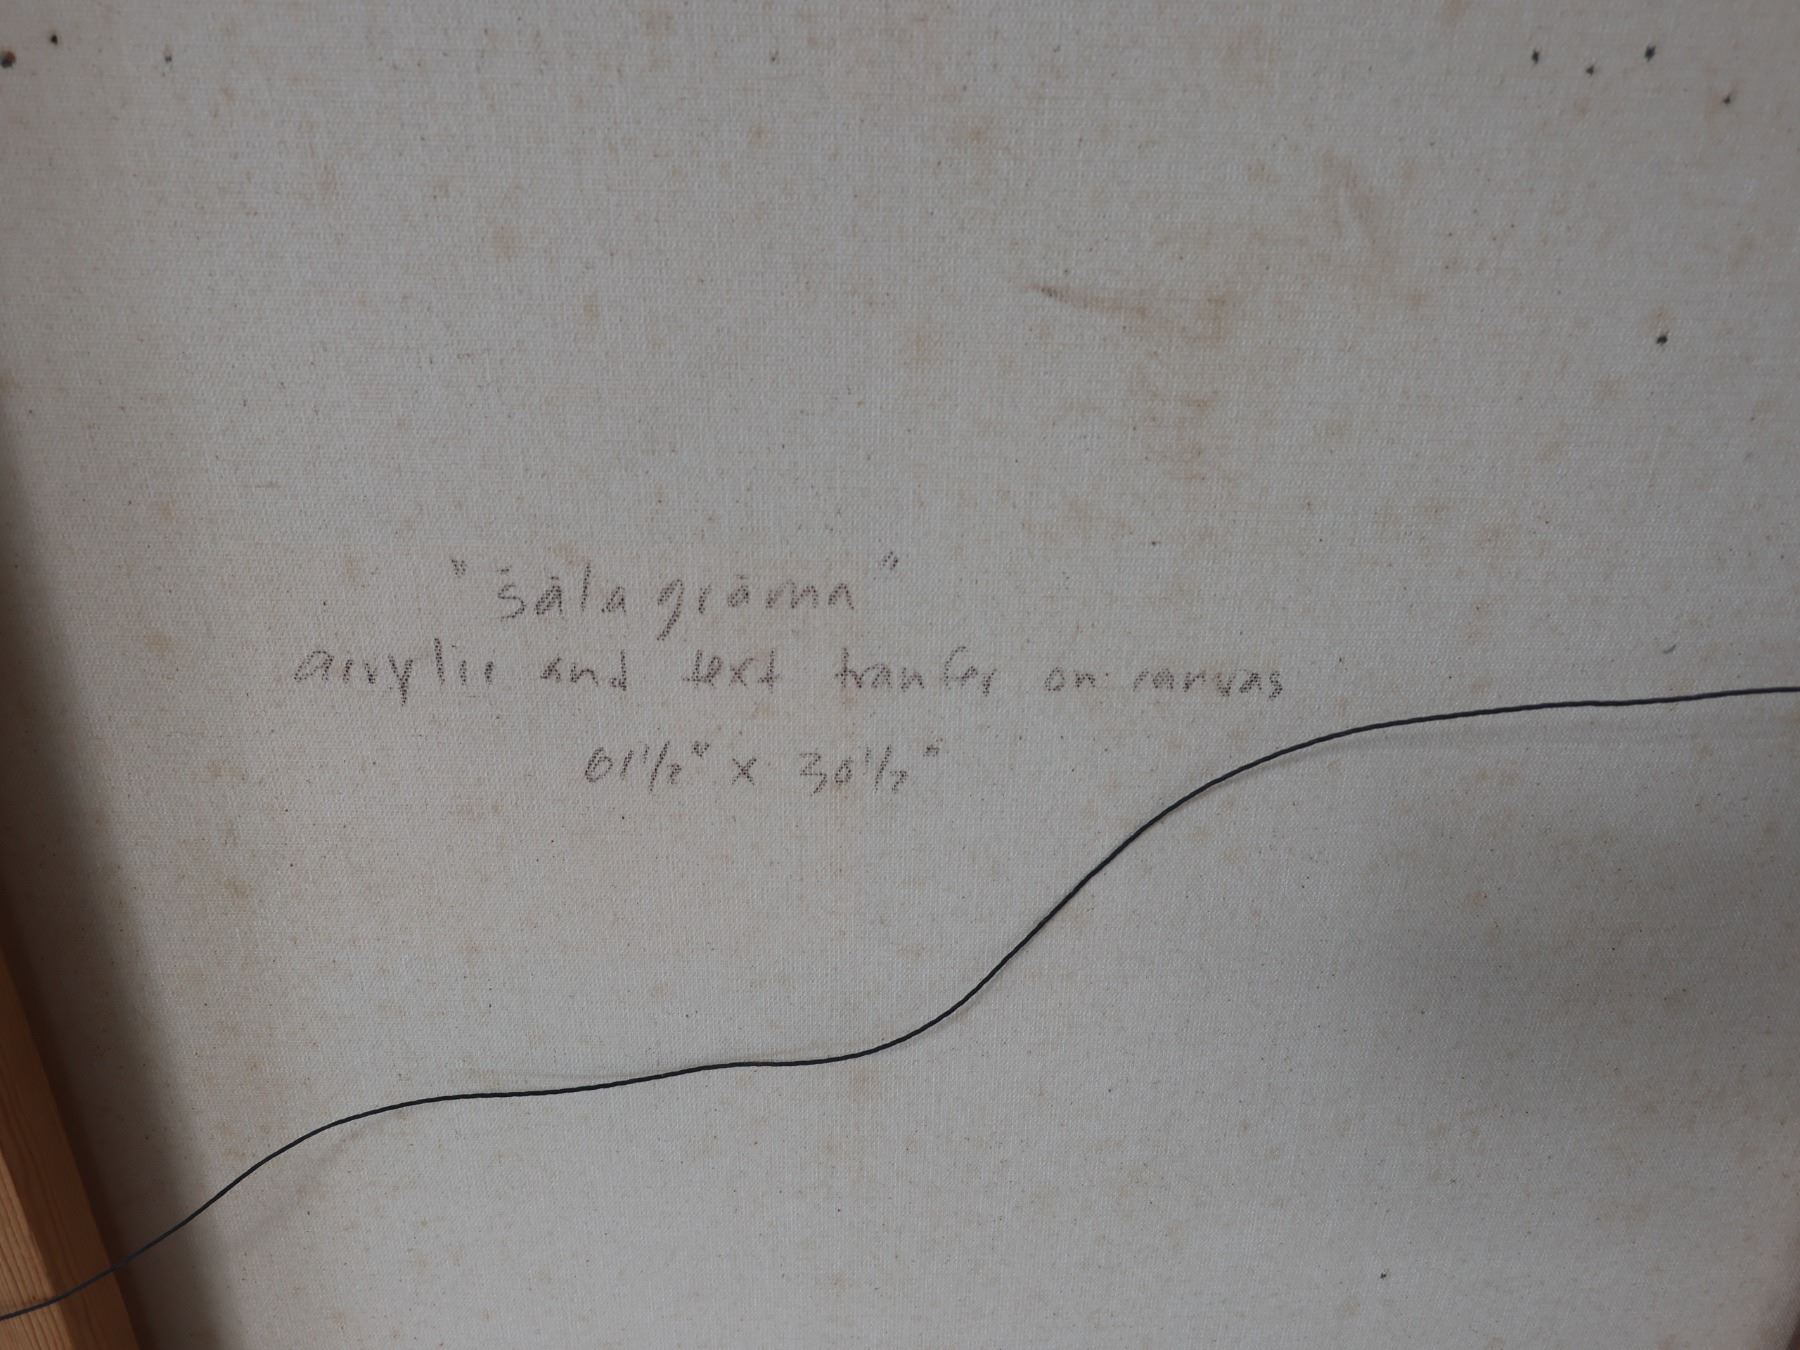 "śāla grāma"
acrylic and text tranfer on canvas
61 1/2" x 30 1/2"